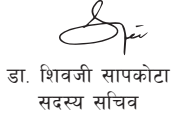 डा. शिवजी सापकोटा
सदस्य सचिव